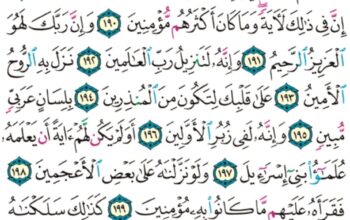 إِنَّ فِى ذَٰلِكَ لَءَايَةً ۖ وَمَا كَانَ أَكْثَرُهُم مُّؤْمِنِينَ ١٩٠ وَإِنَّ رَبَّكَ لَهُوَ
ٱلْعَزِيزُ ٱلرَّحِيمُ ١٩١ وَإِنَّهُۥ لَتَنزِيلُ رَبِّ ٱلْعَٰلَمِينَ ١٩٢ نَزَلَ بِهِ ٱلرُّوحُ
ٱلْأَمِينُ ١٩٣ عَلَىٰ قَلْبِكَ لِتَكُونَ مِنَ ٱلْمُنذِرِينَ ١٩٤ بِلِسَانٍ عَرَبِىٍّ
مُّبِينٍ ١٩٥ وَإِنَّهُۥ لَفِى زُبُرِ ٱلْأَوَّلِينَ ١٩٦ أَوَلَمْ يَكُن لَّهُمْ ءَايَةً أَن يَعْلَمَهُۥ
عُلَمَٰٓؤُا۟ بَنِىٓ إِسْرَٰٓءِيلَ ١٩٧ وَلَوْ نَزَّلْنَٰهُ عَلَىٰ بَعْضِ ٱلْأَعْجَمِينَ ١٩٨
فَقَرَأَهُۥ عَلَيْهِم مَّا كَانُوا۟ بِهِۦ مُؤْمِنِينَ ١٩٩ كَذَٰلِكَ سَلَكْنَٰهُ